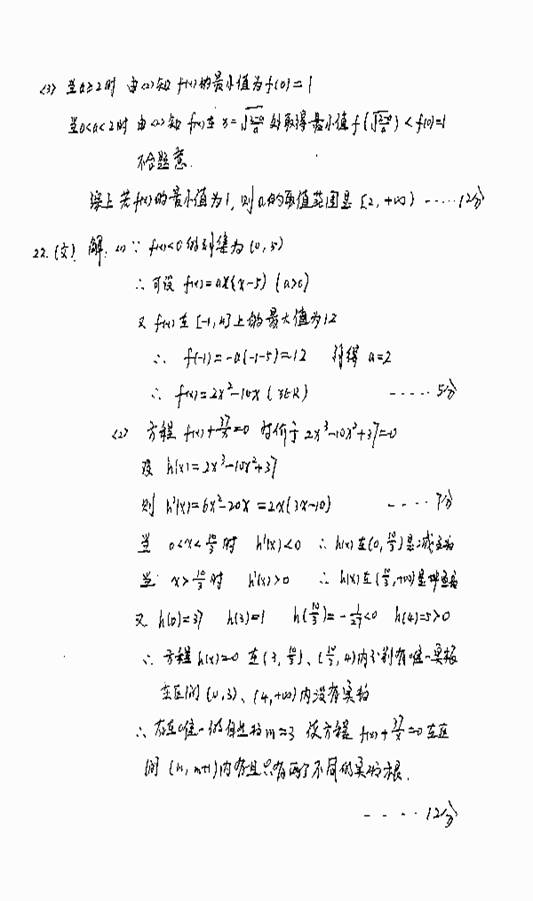 (3) 当a≥2时 由(2)知 f(x)的最小值为f(0)=1
当0<a<2时 由(2)知 f(x)在 x=√((2-a)/a) 处取得最小值 f(√((2-a)/a))<f(0)=1
不合题意.
综上 若f(x)的最小值为1, 则a的取值范围是 [2, +∞) ……12分
22.(文) 解: (1) ∵ f(x)<0的解集为(0, 5)
∴ 可设 f(x)=ax(x-5) (a>0)
又 f(x)在[-1, 4]上的最大值为12
∴ f(-1)=-a(-1-5)=12 得 a=2
∴ f(x)=2x²-10x (x∈R) ……5分
(2) 方程 f(x)+37/x=0 等价于 2x³-10x²+37=0
设 h(x)=2x³-10x²+37
则 h'(x)=6x²-20x=2x(3x-10) ……7分
当 0<x<10/3 时 h'(x)<0 ∴ h(x)在(0, 10/3)是减函数
当 x>10/3 时 h'(x)>0 ∴ h(x)在(10/3, +∞)是增函数
又 h(0)=37 h(3)=1 h(10/3)=-1/27<0 h(4)=5>0
∴ 方程h(x)=0 在(3, 10/3)、(10/3, 4)内分别有唯一实根
在区间(0, 3)、(4, +∞)内没有实根
∴ 存在唯一的自然数m=3 使方程 f(x)+37/x=0在区
间(m, m+1)内有且只有两个不同的实数根.
……12分